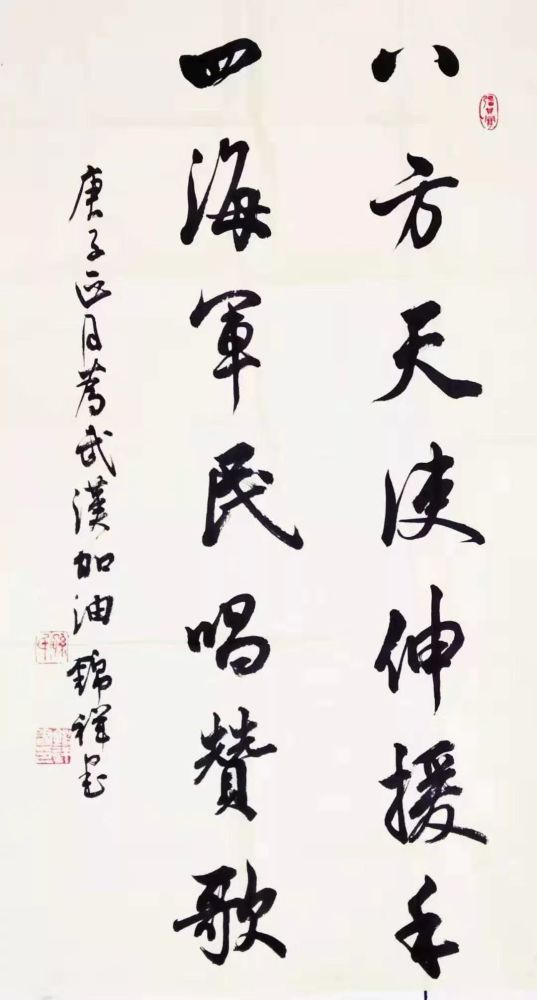 八方天使伸援手
四海軍民唱贊歌
庚子正月為武漢加油 錦祥書